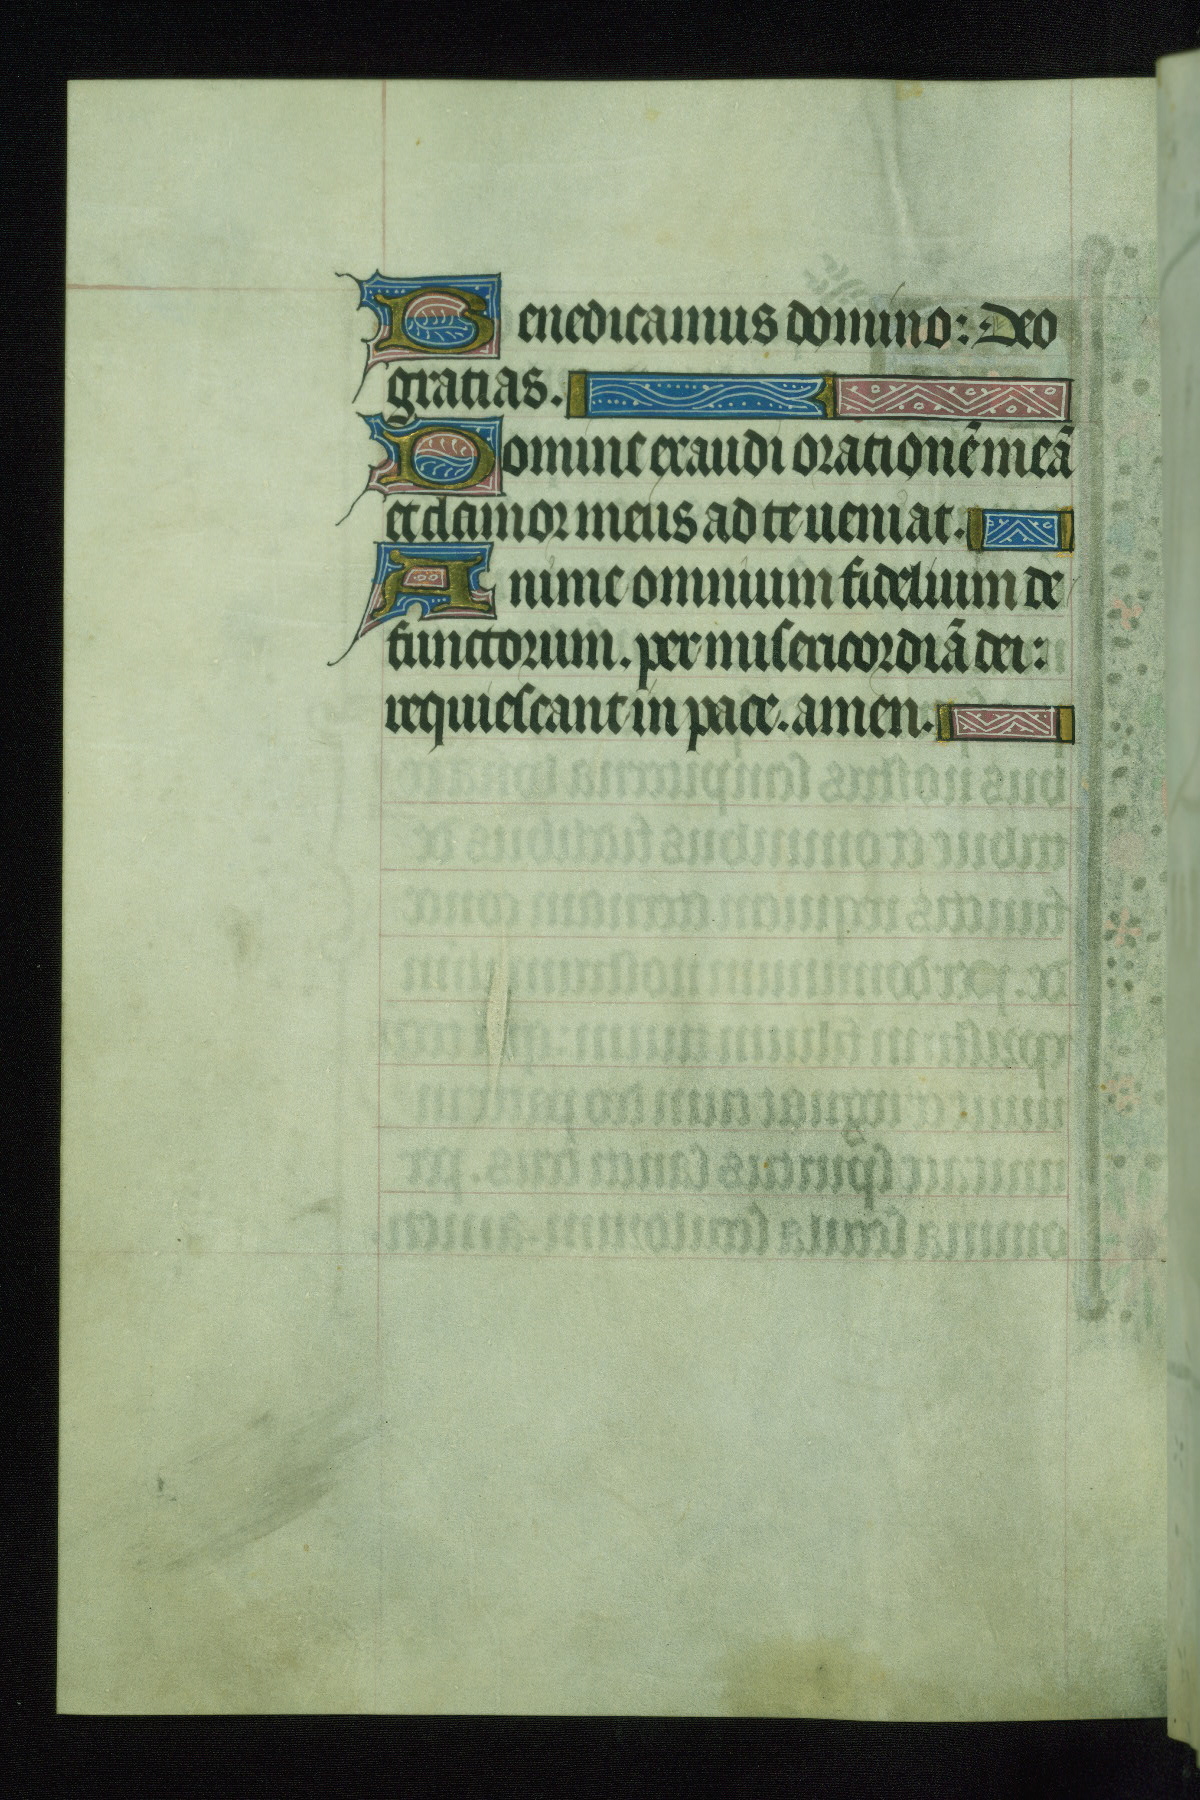 Benedicamus domino: Deo
gratias.
Domine exaudi orationē meā
et clamor meus ad te ueniat.
Anime omnium fidelium de
functorum. per misericordiā dei:
requiescant in pace. amen.